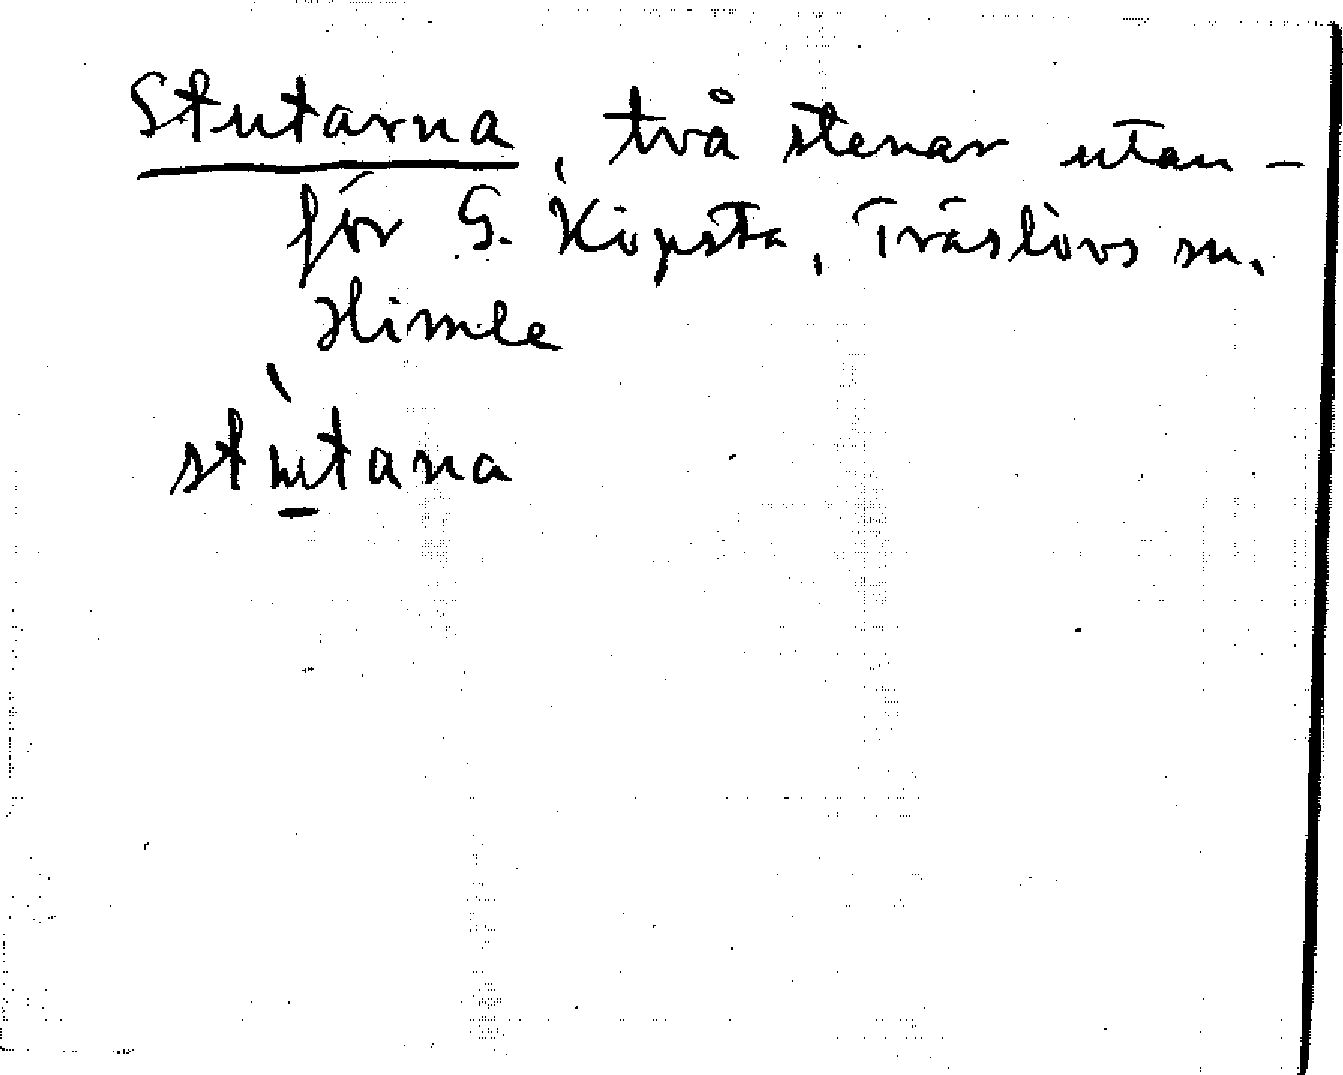 Stutarna, två stenar utan-
för G. Köpsta, Träslövs sn.
Himle
stùtana